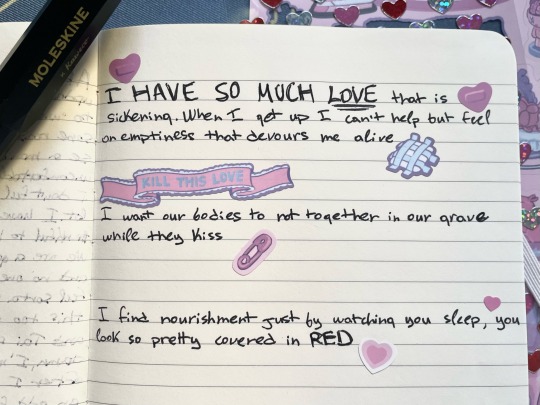 MOLESKINE
I HAVE SO MUCH LOVE that is
sickening. When I get up I can't help but feel
an emptiness that devours me alive
KILL THIS LOVE
I want our bodies to rot together in our grave
while they kiss
I find nourishment just by watching you sleep, you
look so pretty covered in RED